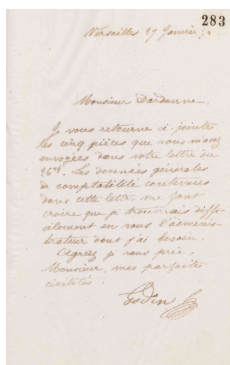 283
Versailles 27 Janvier
Monsieur Dardenne,
Je vous retourne ci-jointes
les cinq pièces que vous m'avez
envoyées dans votre lettre du
26ct. Les données générales
de comptabilité contenues
dans cette lettre me font
croire que je trouverais diffi-
cilement en vous l'adminis-
trateur dont j'ai besoin.
Agréez je vous prie,
Monsieur, mes parfaites
civilités.
Godin